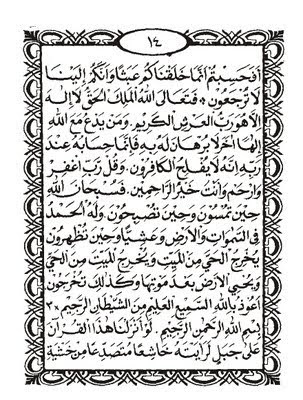 ١٤
أَفَحَسِبْتُمْ أَنَّمَا خَلَقْنَاكُمْ عَبَثًا وَأَنَّكُمْ إِلَيْنَا
لَا تُرْجَعُونَ ۞ فَتَعَالَى اللهُ الْمَلِكُ الْحَقُّ لَا إِلٰهَ
إِلَّا هُوَ رَبُّ الْعَرْشِ الْكَرِيمِ وَمَنْ يَدْعُ مَعَ اللهِ
إِلٰهًا آخَرَ لَا بُرْهَانَ لَهُ بِهِ فَإِنَّمَا حِسَابُهُ عِنْدَ
رَبِّهِ إِنَّهُ لَا يُفْلِحُ الْكَافِرُونَ وَقُلْ رَبِّ اغْفِرْ
وَارْحَمْ وَأَنْتَ خَيْرُ الرَّاحِمِينَ فَسُبْحَانَ اللهِ
حِينَ تُمْسُونَ وَحِينَ تُصْبِحُونَ وَلَهُ الْحَمْدُ
فِي السَّمٰوَاتِ وَالْأَرْضِ وَعَشِيًّا وَحِينَ تُظْهِرُونَ
يُخْرِجُ الْحَيَّ مِنَ الْمَيِّتِ وَيُخْرِجُ الْمَيِّتَ مِنَ الْحَيِّ
وَيُحْيِي الْأَرْضَ بَعْدَ مَوْتِهَا وَكَذٰلِكَ تُخْرَجُونَ
أَعُوذُ بِاللهِ السَّمِيعِ الْعَلِيمِ مِنَ الشَّيْطَانِ الرَّجِيمِ ٣
بِسْمِ اللهِ الرَّحْمٰنِ الرَّحِيمِ لَوْ أَنْزَلْنَا هٰذَا الْقُرْآنَ
عَلَى جَبَلٍ لَرَأَيْتَهُ خَاشِعًا مُتَصَدِّعًا مِنْ خَشْيَةِ